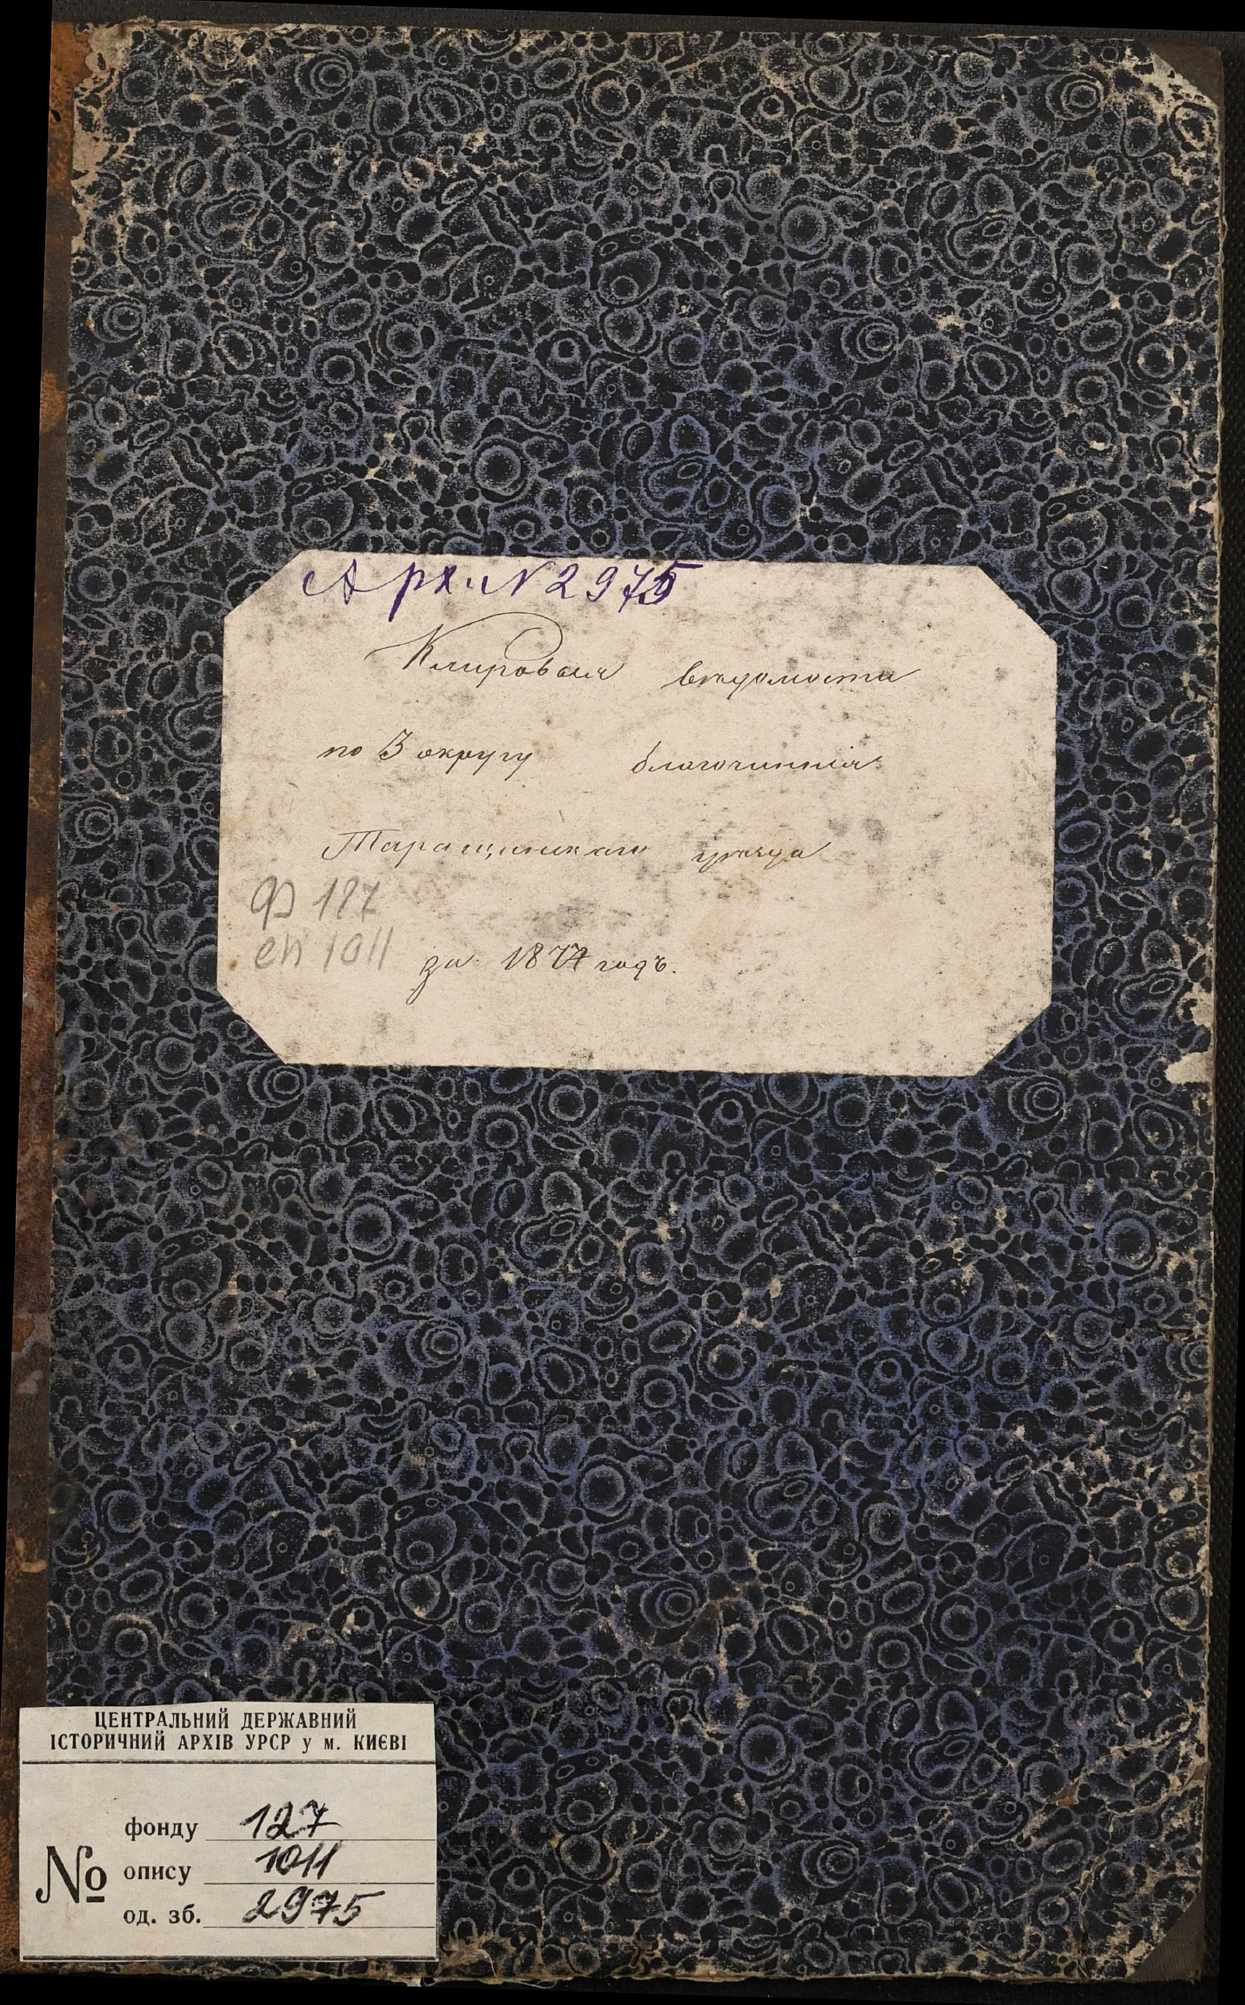 Арх. N 2975
Клировая ведомости
по 3 округу благочиннія
Таращанскаго уезда
Ф 127
оп 1011
за 1877 годъ.
ЦЕНТРАЛЬНИЙ ДЕРЖАВНИЙ
ІСТОРИЧНИЙ АРХІВ УРСР у м. КИЄВІ
№
фонду 127
опису 1011
од. зб. 2975